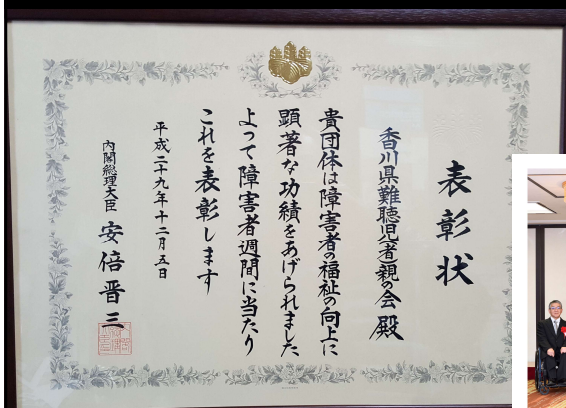 表彰状
香川県難聴児(者)親の会 殿
貴団体は障害者の福祉の向上に
顕著な功績をあげられました
よって障害者週間に当たり
これを表彰します
平成二十九年十二月五日
内閣総理大臣 安倍晋三